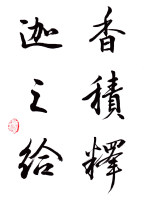 香積釋
迦之給